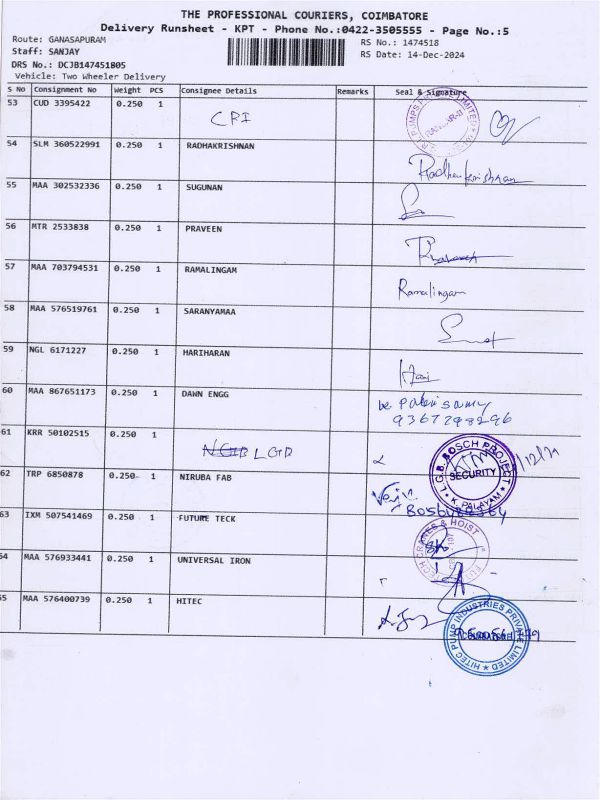 THE PROFESSIONAL COURIERS, COIMBATORE
Delivery Runsheet - KPT - Phone No.:0422-3505555 - Page No.:5
Route: GANASAPURAM
RS No.: 1474518
Staff: SANJAY
RS Date: 14-Dec-2024
DRS No.: DCJB147451805
Vehicle: Two Wheeler Delivery
S No Consignment No Weight PCS Consignee Details Remarks Seal & Signature
53 CUD 3395422 0.250 1 CRI
54 SLM 360522991 0.250 1 RADHAKRISHNAN Radhakrishnan
55 MAA 302532336 0.250 1 SUGUNAN
56 MTR 2533838 0.250 1 PRAVEEN
57 MAA 703794531 0.250 1 RAMALINGAM Ramalingam
58 MAA 576519761 0.250 1 SARANYAMAA
59 NGL 6171227 0.250 1 HARIHARAN Hari
60 MAA 867651173 0.250 1 DAWN ENGG
9367298296
61 KRR 50102515 0.250 1 LGB
L.G.B. BOSCH PROJECT
SECURITY
K. PALAYAM
62 TRP 6850878 0.250 1 NIRUBA FAB
63 IXM 507541469 0.250 1 FUTURE TECK
TECH CRANES & HOIST
64 MAA 576933441 0.250 1 UNIVERSAL IRON
65 MAA 576400739 0.250 1 HITEC
HITEC PUMP INDUSTRIES PRIVATE LIMITED